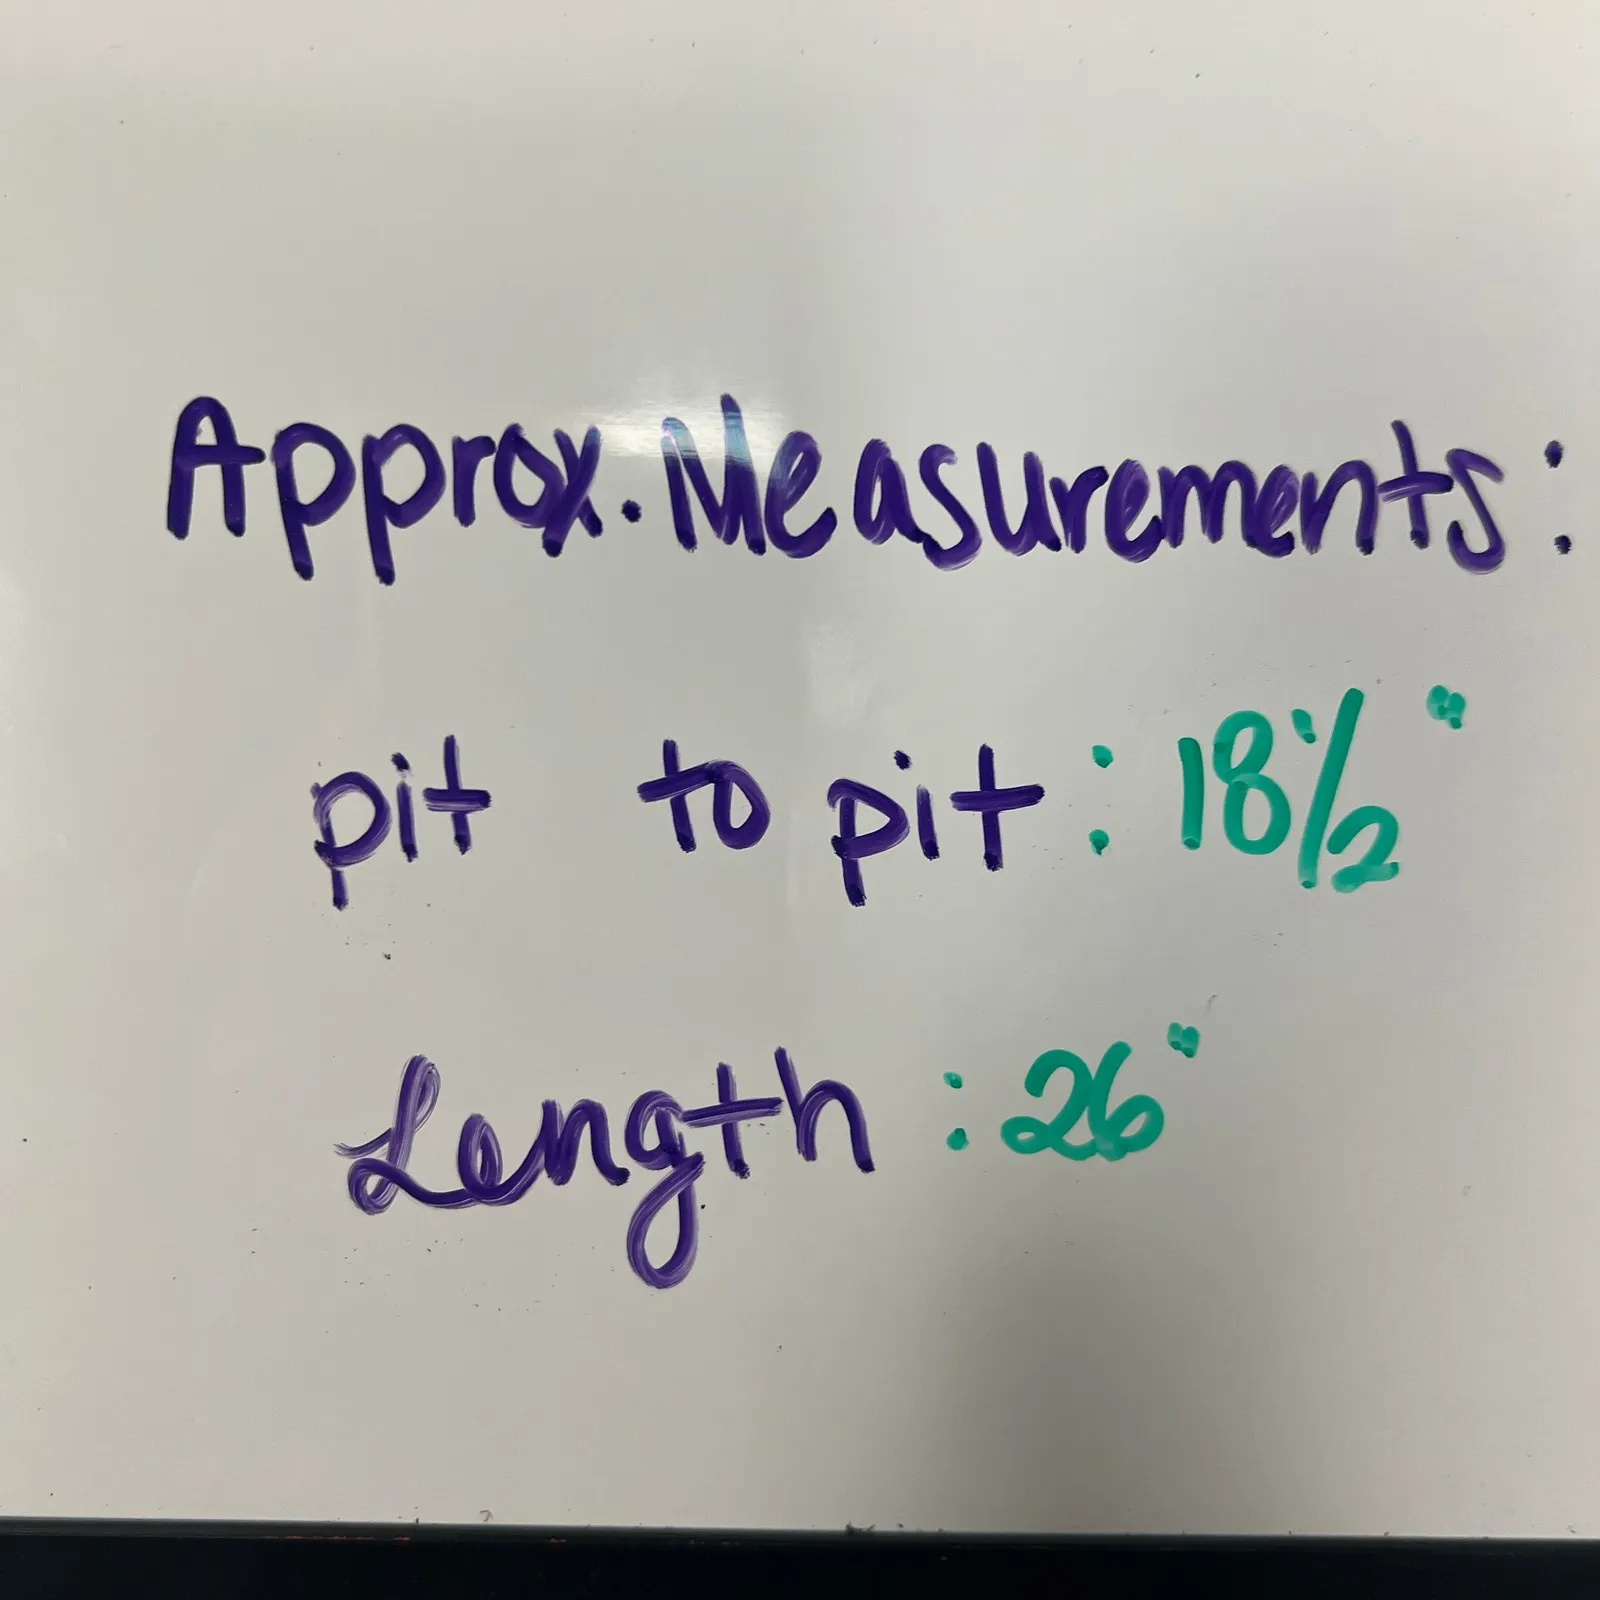 Approx. Measurements:
pit to pit: 18 1/2"
Length: 26"